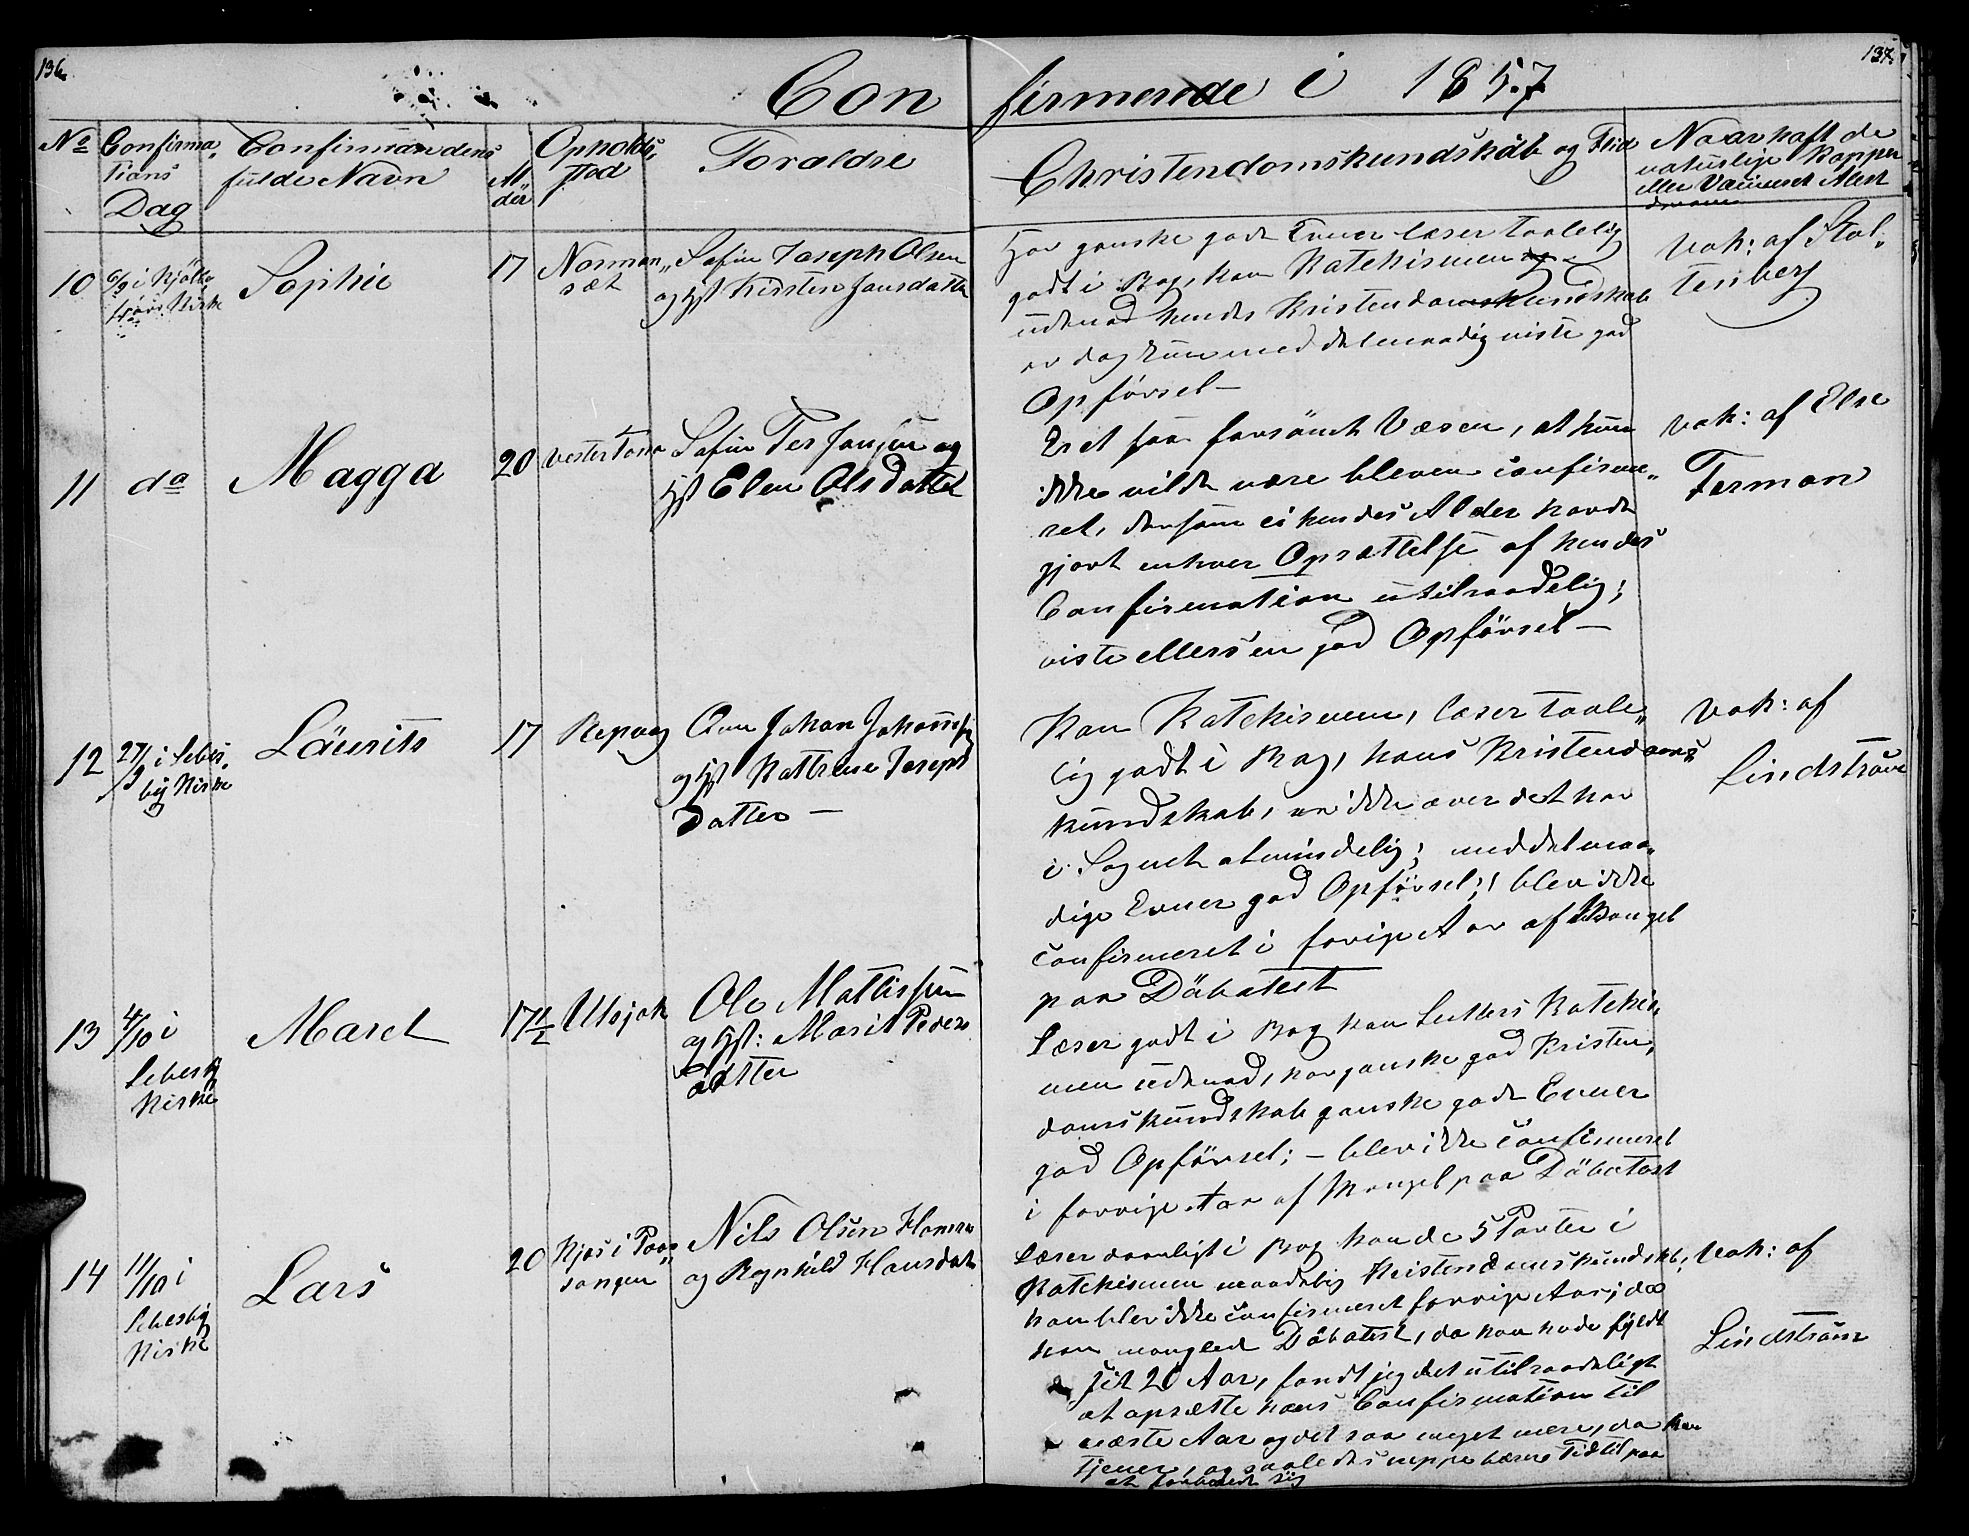 136.
137.
Confirmerede i 1857
No
Confirma-
tions
Dag
Confirmandens
fulde Navn
Al
der
Opholds
sted
Foræld​re
Christendomskundskab og Flid
Naar haft de
naturlige Kopper
eller Vaccineret Atest
derom
10
6/9 i Kjølle
fjords Kirke
Sophie
17
Norman-
sæt
Safin Joseph Olsen
og hst Kirsten Jonsdatter
Har ganske gode Evner læser taalelig
godt i Bog, kan Katekismen
udenad hendes Kristendomskundskab
er dog kun middelmaadig viste god
Opførsel —
vak: af Stol-
tenberg
11
do
Magga
20
Vestertana
Safin Per Jonsen og
hst Elen Olsdatter
Er et saa forsømt Væsen, at hun
ikke vilde være bleven confirme-
ret, dersom ei hendes Alder havde
gjort enhver Opsættelse af hendes
Confirmation utilraadelig;
viste ellers en god Opførsel —
vak: af Else
Ferman
12
27/9 i Lebes-
by Kirke
Laurits
17
Repvog
Qvæn Johan Johannsen
og hst Kattrine Joseps
datter —
Kan Katekismen, læser taale-
lig godt i Bog, hans Kristendoms
kundskab, er ikke over det her
i Sognet almindelig; middelmaa-
dige Evner god Opførsel; blev ikke
confirmeret i forrige Aar af Mangel
paa Døbatest
vak: af
Lindstrøm
13
4/10 i
Lebesby
Kirke
Maret
17 1/2
Utsjok
Ole Mattissen
og hst: Marit Peders
datter
Læser godt i Bog kan Luthers Katekis-
men udenad, har ganske god Kristen-
domskundskab ganske gode Evner
god Opførsel; — blev ikke confirmeret
i forrige Aar af Mangel paa Døbatest
14
11/10 i
Lebesby
Kirke
Lars
20
Kjæs i Por-
sangen
Nils Olsen Hansen
og Ragnhild Hansdat
Læser daarligt i Bog kan de 5 Parter i
Katekismen maadelig Kristendomskundskb;
han blev ikke confirmeret forrige Aar, da
han manglede Døbatest, da han havde fyldt
sit 20 Aar, fandt jeg det utilraadeligt
at opsætte hans Confirmation til
næste Aar og det saa meget mere, da han
tjener, og saaledes neppe havde Tid til paa
at forberede sig
vak: af
Lindstrøm